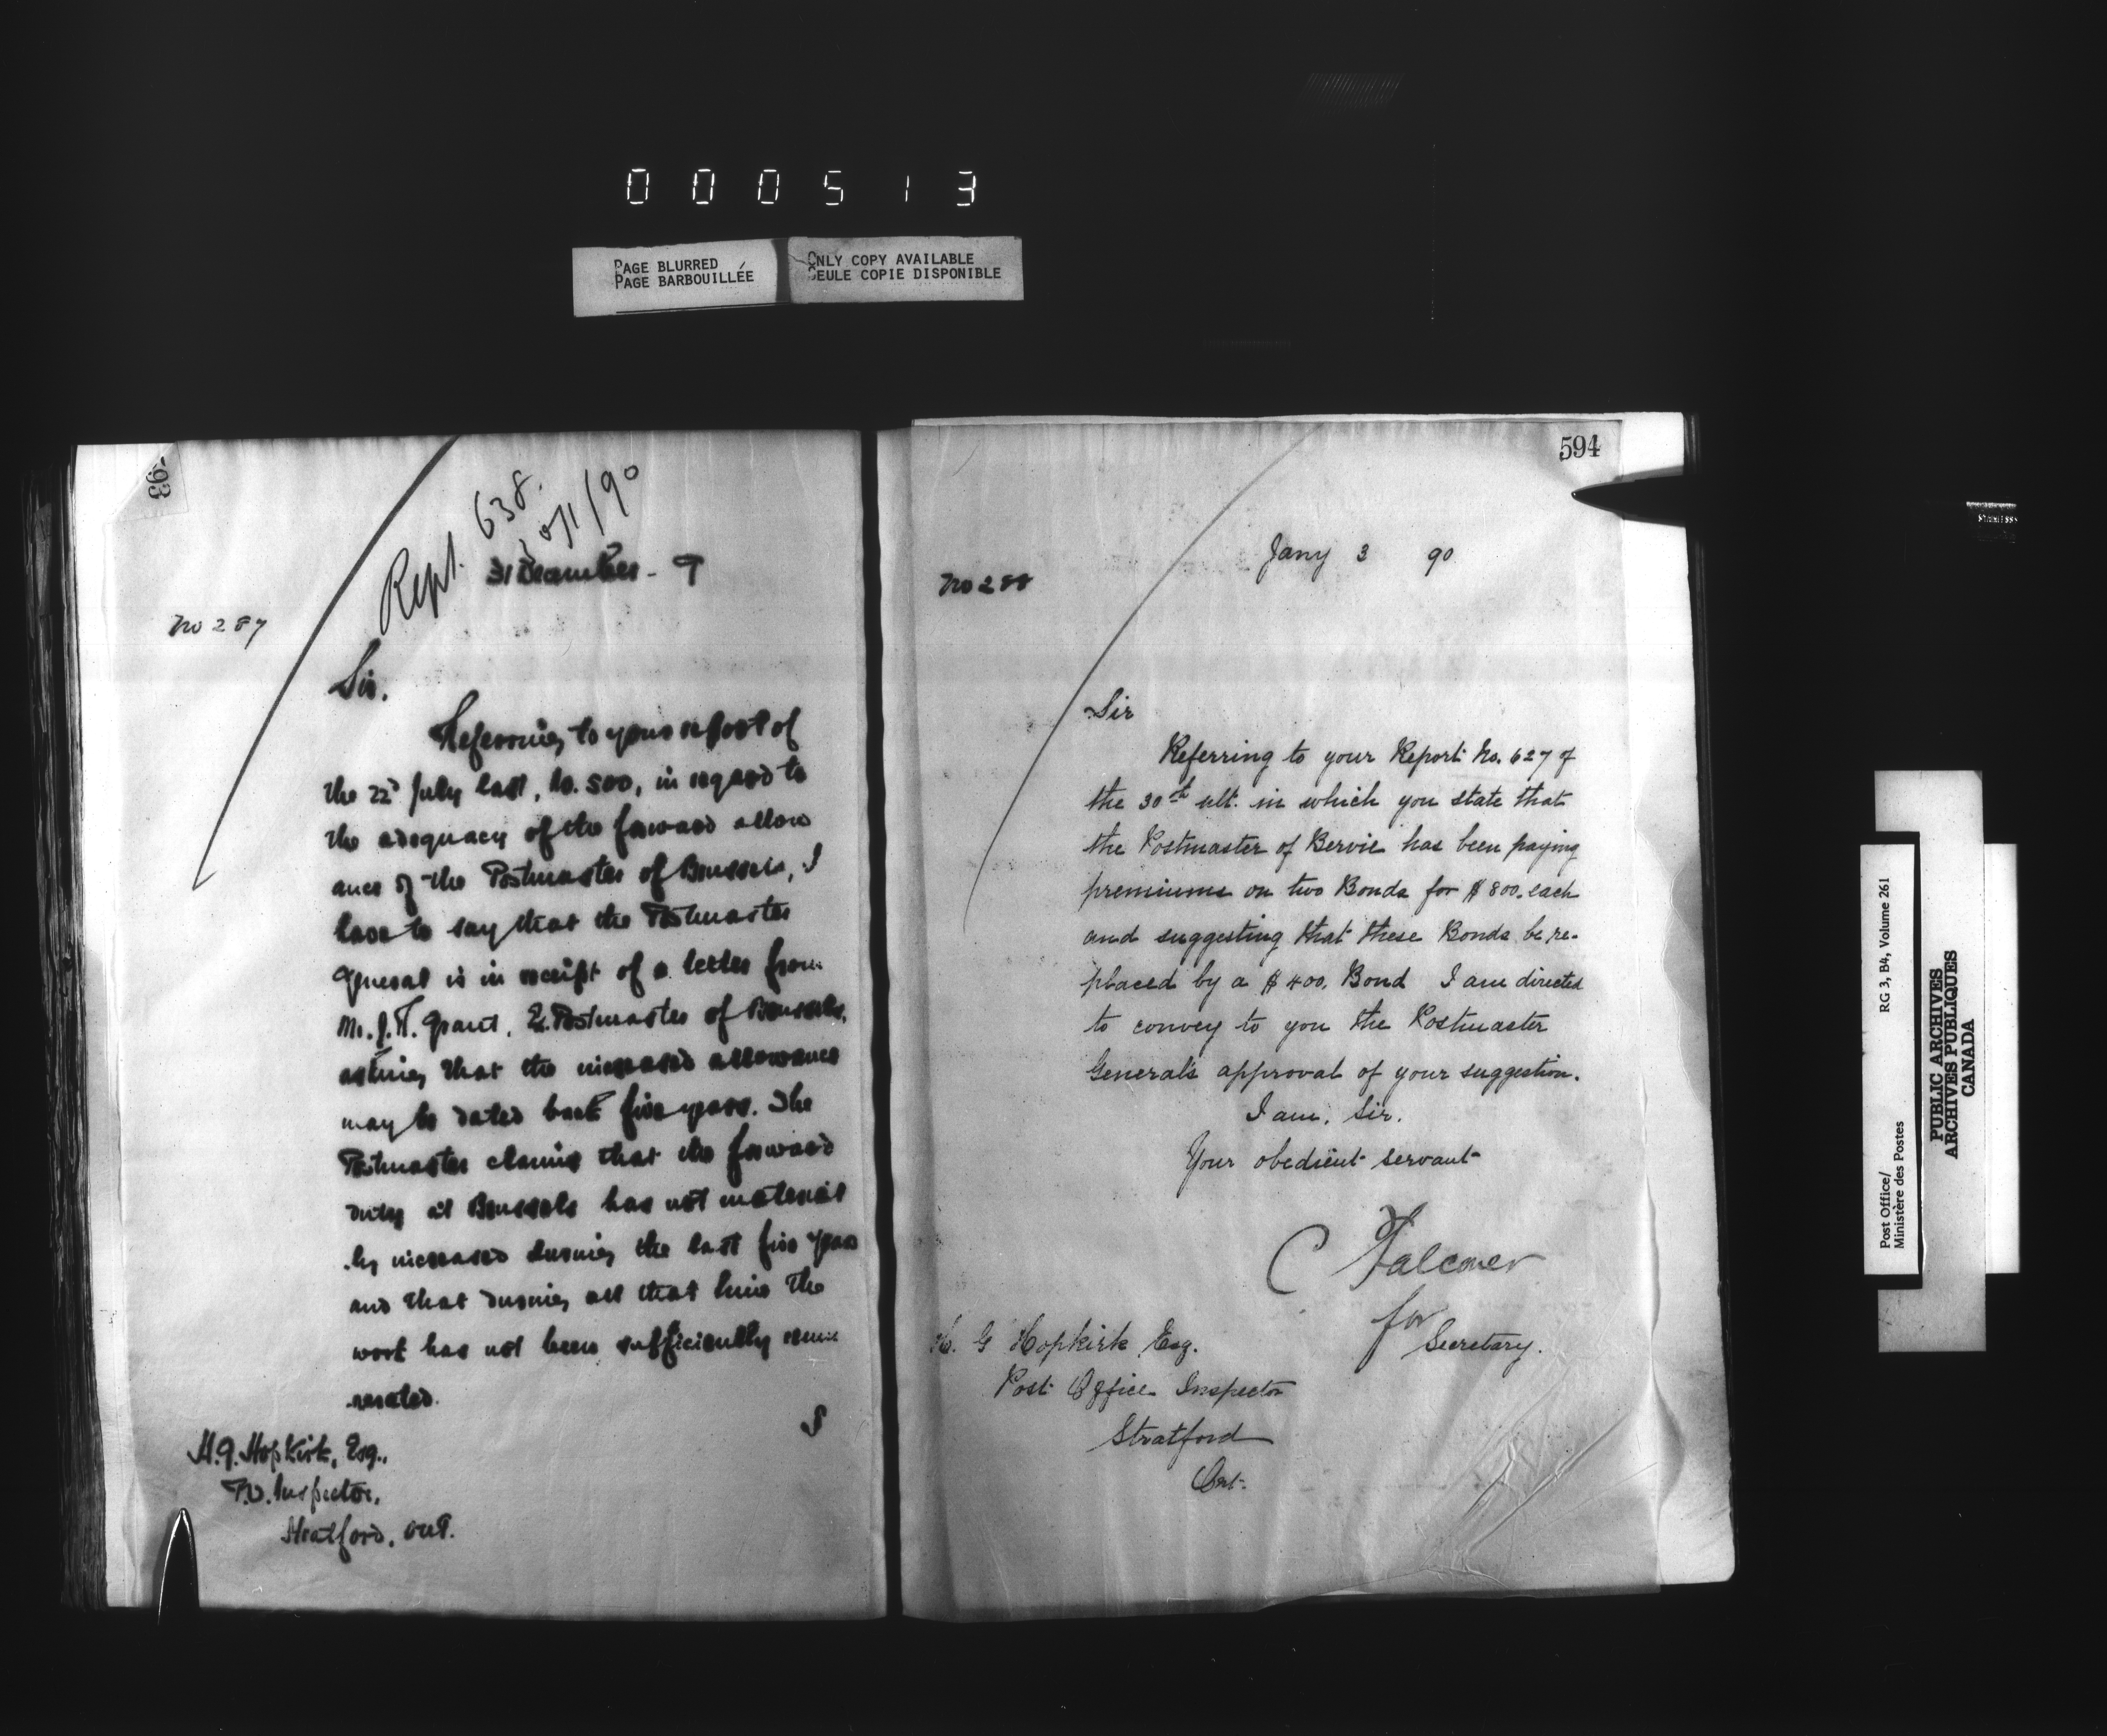 000513
PAGE BLURRED
PAGE BARBOUILLÉE
ONLY COPY AVAILABLE
SEULE COPIE DISPONIBLE
93
Rept. 638.
/90
31 December - 9
No 287
Sir.
Referring to your report of
the 22d July last, No. 500, in regard to
the adequacy of the forward allow
ance of the Postmaster of Brussels, I
have to say that the Postmaster
General is in receipt of a letter from
Mr. J. R. Grant, Ex. Postmaster of Brussels,
asking that the increased allowance
may be dated back five years. The
Postmaster claims that the forward
duty at Brussels has not material
ly increased during the last five years
and that during all that time the
work has not been sufficiently remu
nerated.
H. G. Hopkirk, Esq.,
P.O. Inspector,
Stratford, Ont.
594
Jany 3 90
No 288
Sir
Referring to your Report No. 627 of
the 30th ult. in which you state that
the Postmaster of Bervie has been paying
premiums on two Bonds for $800. each
and suggesting that these Bonds be re-
placed by a $400. Bond I am directed
to convey to you the Postmaster
General's approval of your suggestion.
I am, Sir.
Your obedient servant
C Falconer
for
Secretary.
H. G Hopkirk Esq.
Post Office Inspector
Stratford
Ont.
Post Office/
Ministère des Postes
RG 3, B4, Volume 261
PUBLIC ARCHIVES
ARCHIVES PUBLIQUES
CANADA